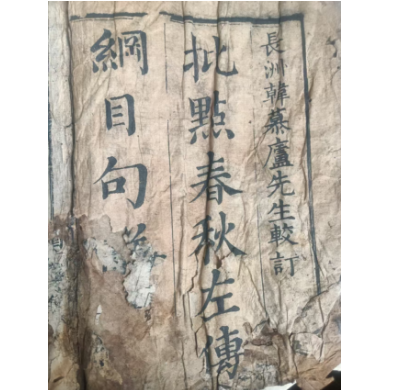 長洲韓慕廬先生較訂
批點春秋左傳
綱目句